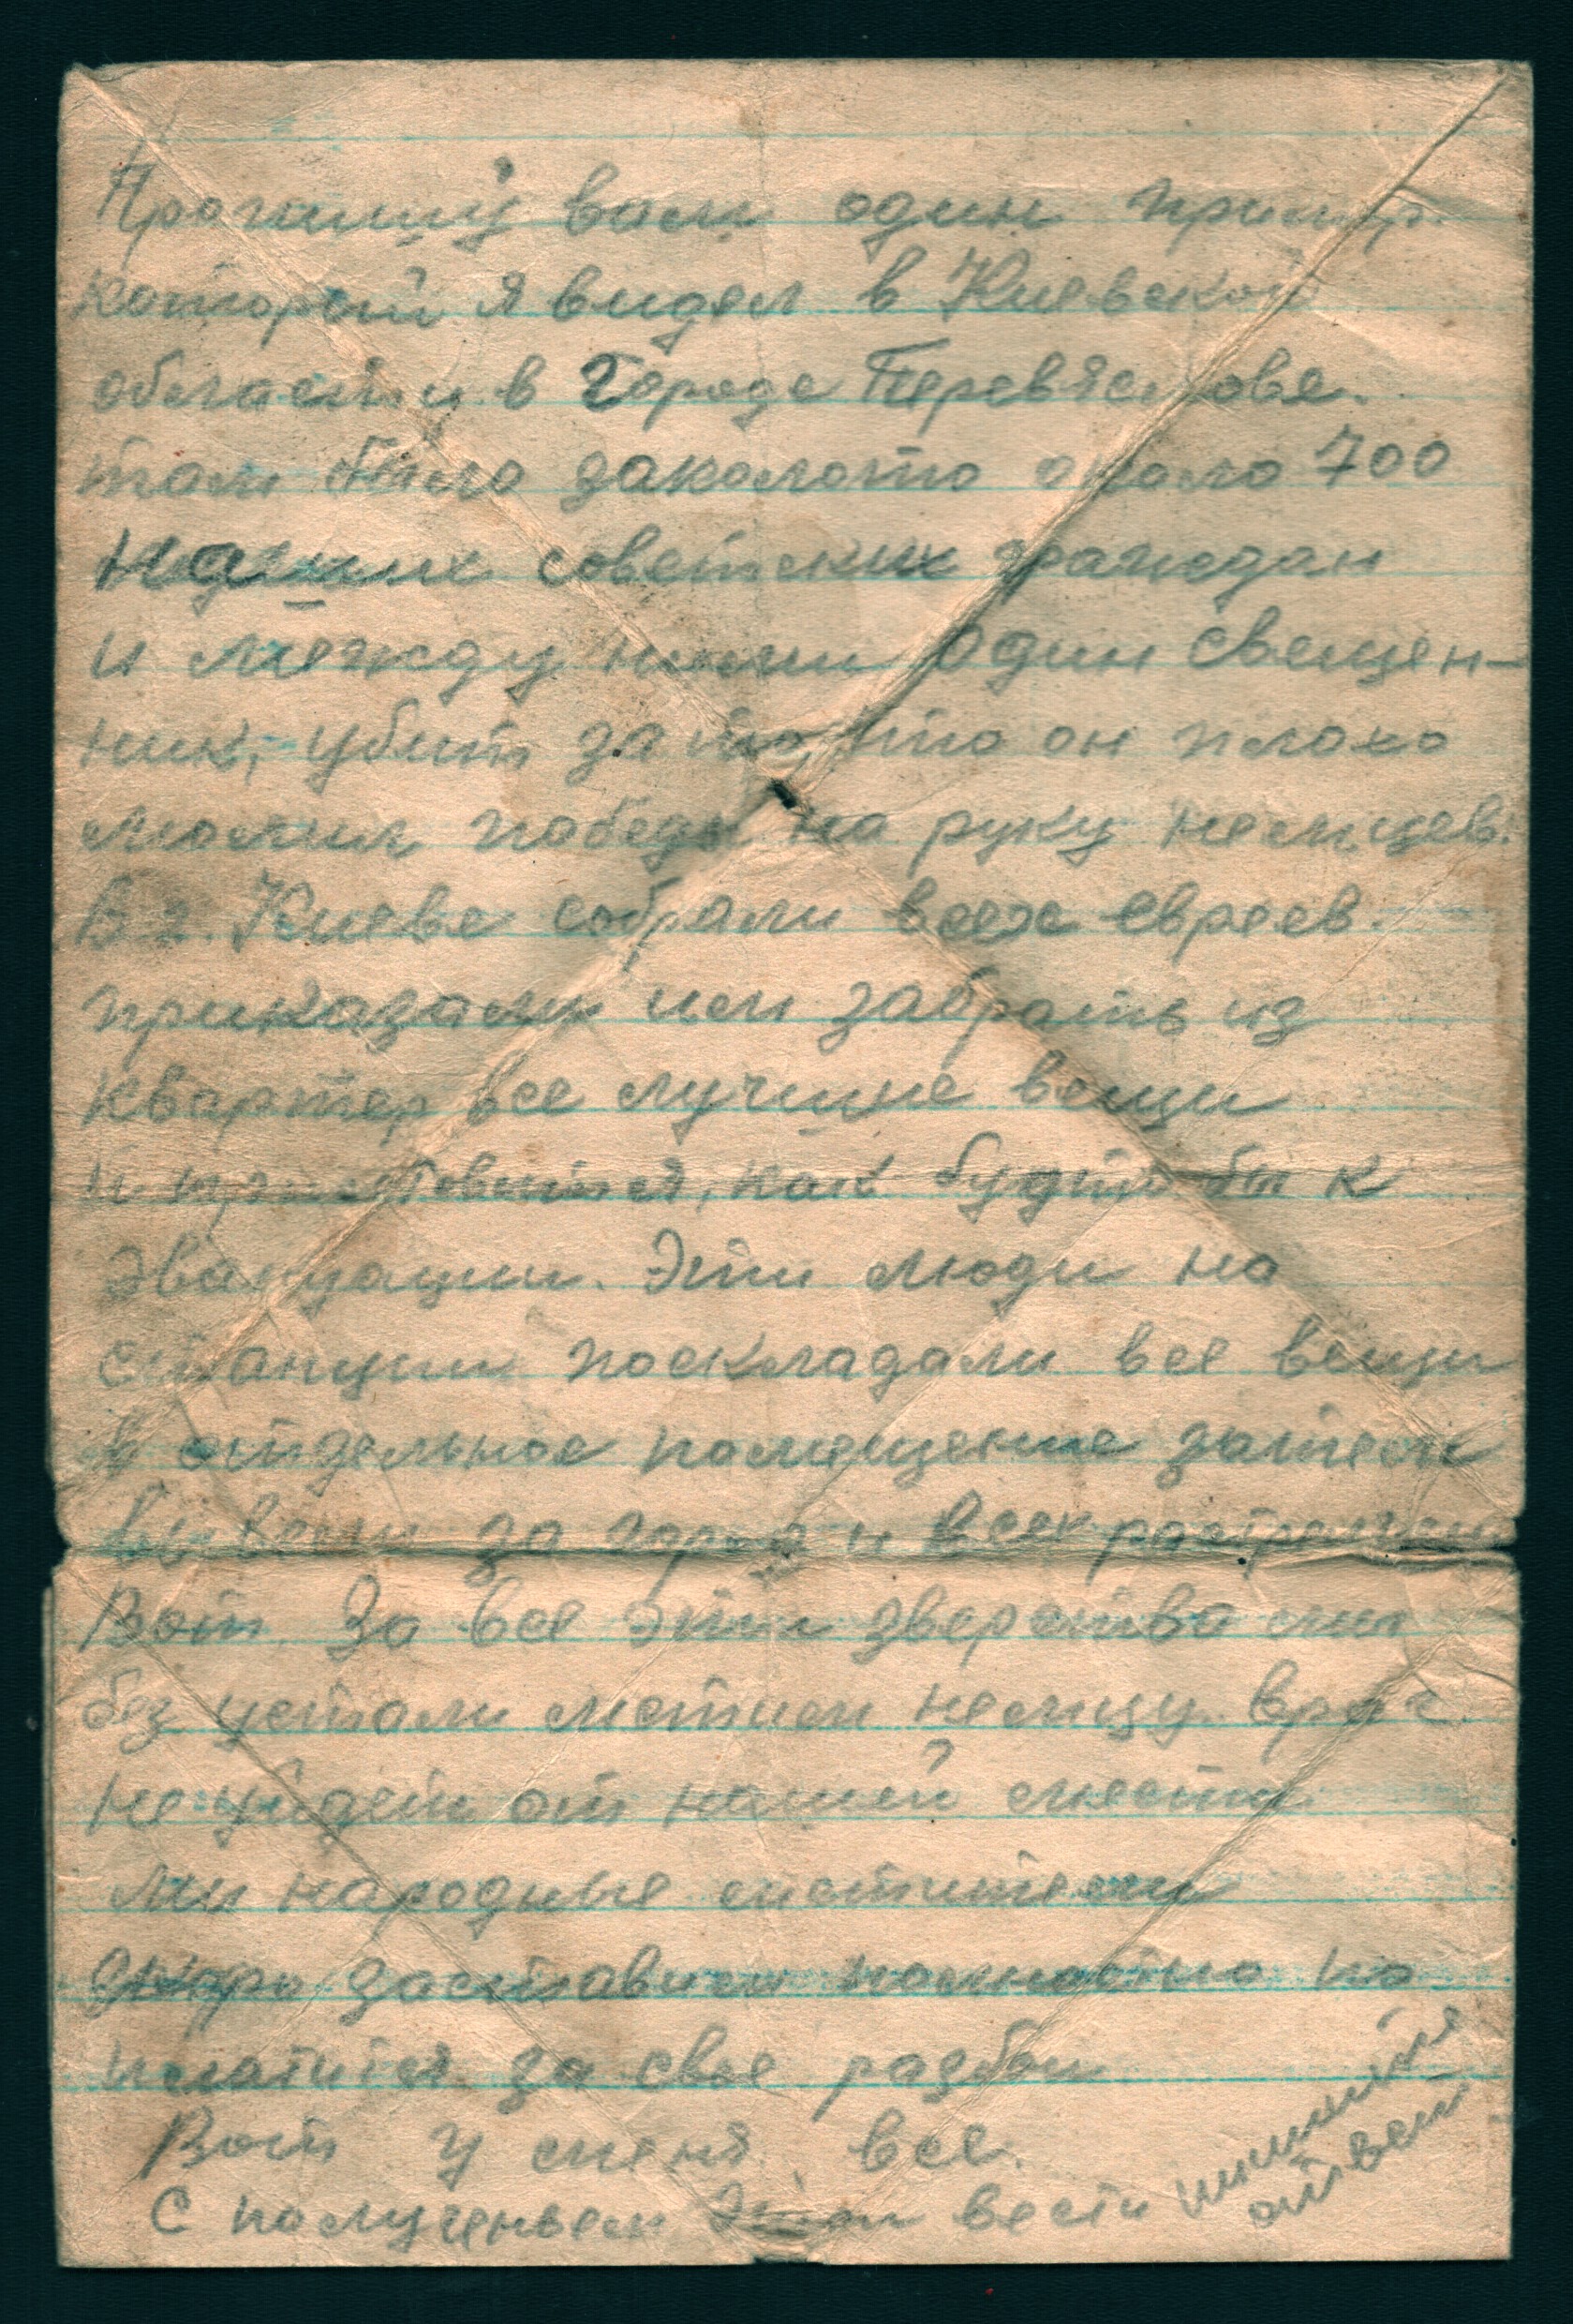 Пропишу вам один пример.
который я видел в Киевской
области в городе Перевяслове.
там было заколото около 700
наших советских граждан
и между ними один свещен-
ник, убит за то, что он плохо
молил победы на руку немцев.
В г. Киеве собрали всех евреев.
приказали им забрать из
квартер все лучшие вещи
и приготовится, как будто бы к
эвакуации. Эти люди на
станции поскладали все вещи
в отдельное помещение затем
вывели за город и всех растреляли
Вот За все эти зверства мы
без устали мстим немцу. враг
не уйдет от нашей мести.
мы народные мстители
скоро заставим полностю по
платится за свое разбои
Вот у меня все.
С полученьем этой вести
пишите
ответ